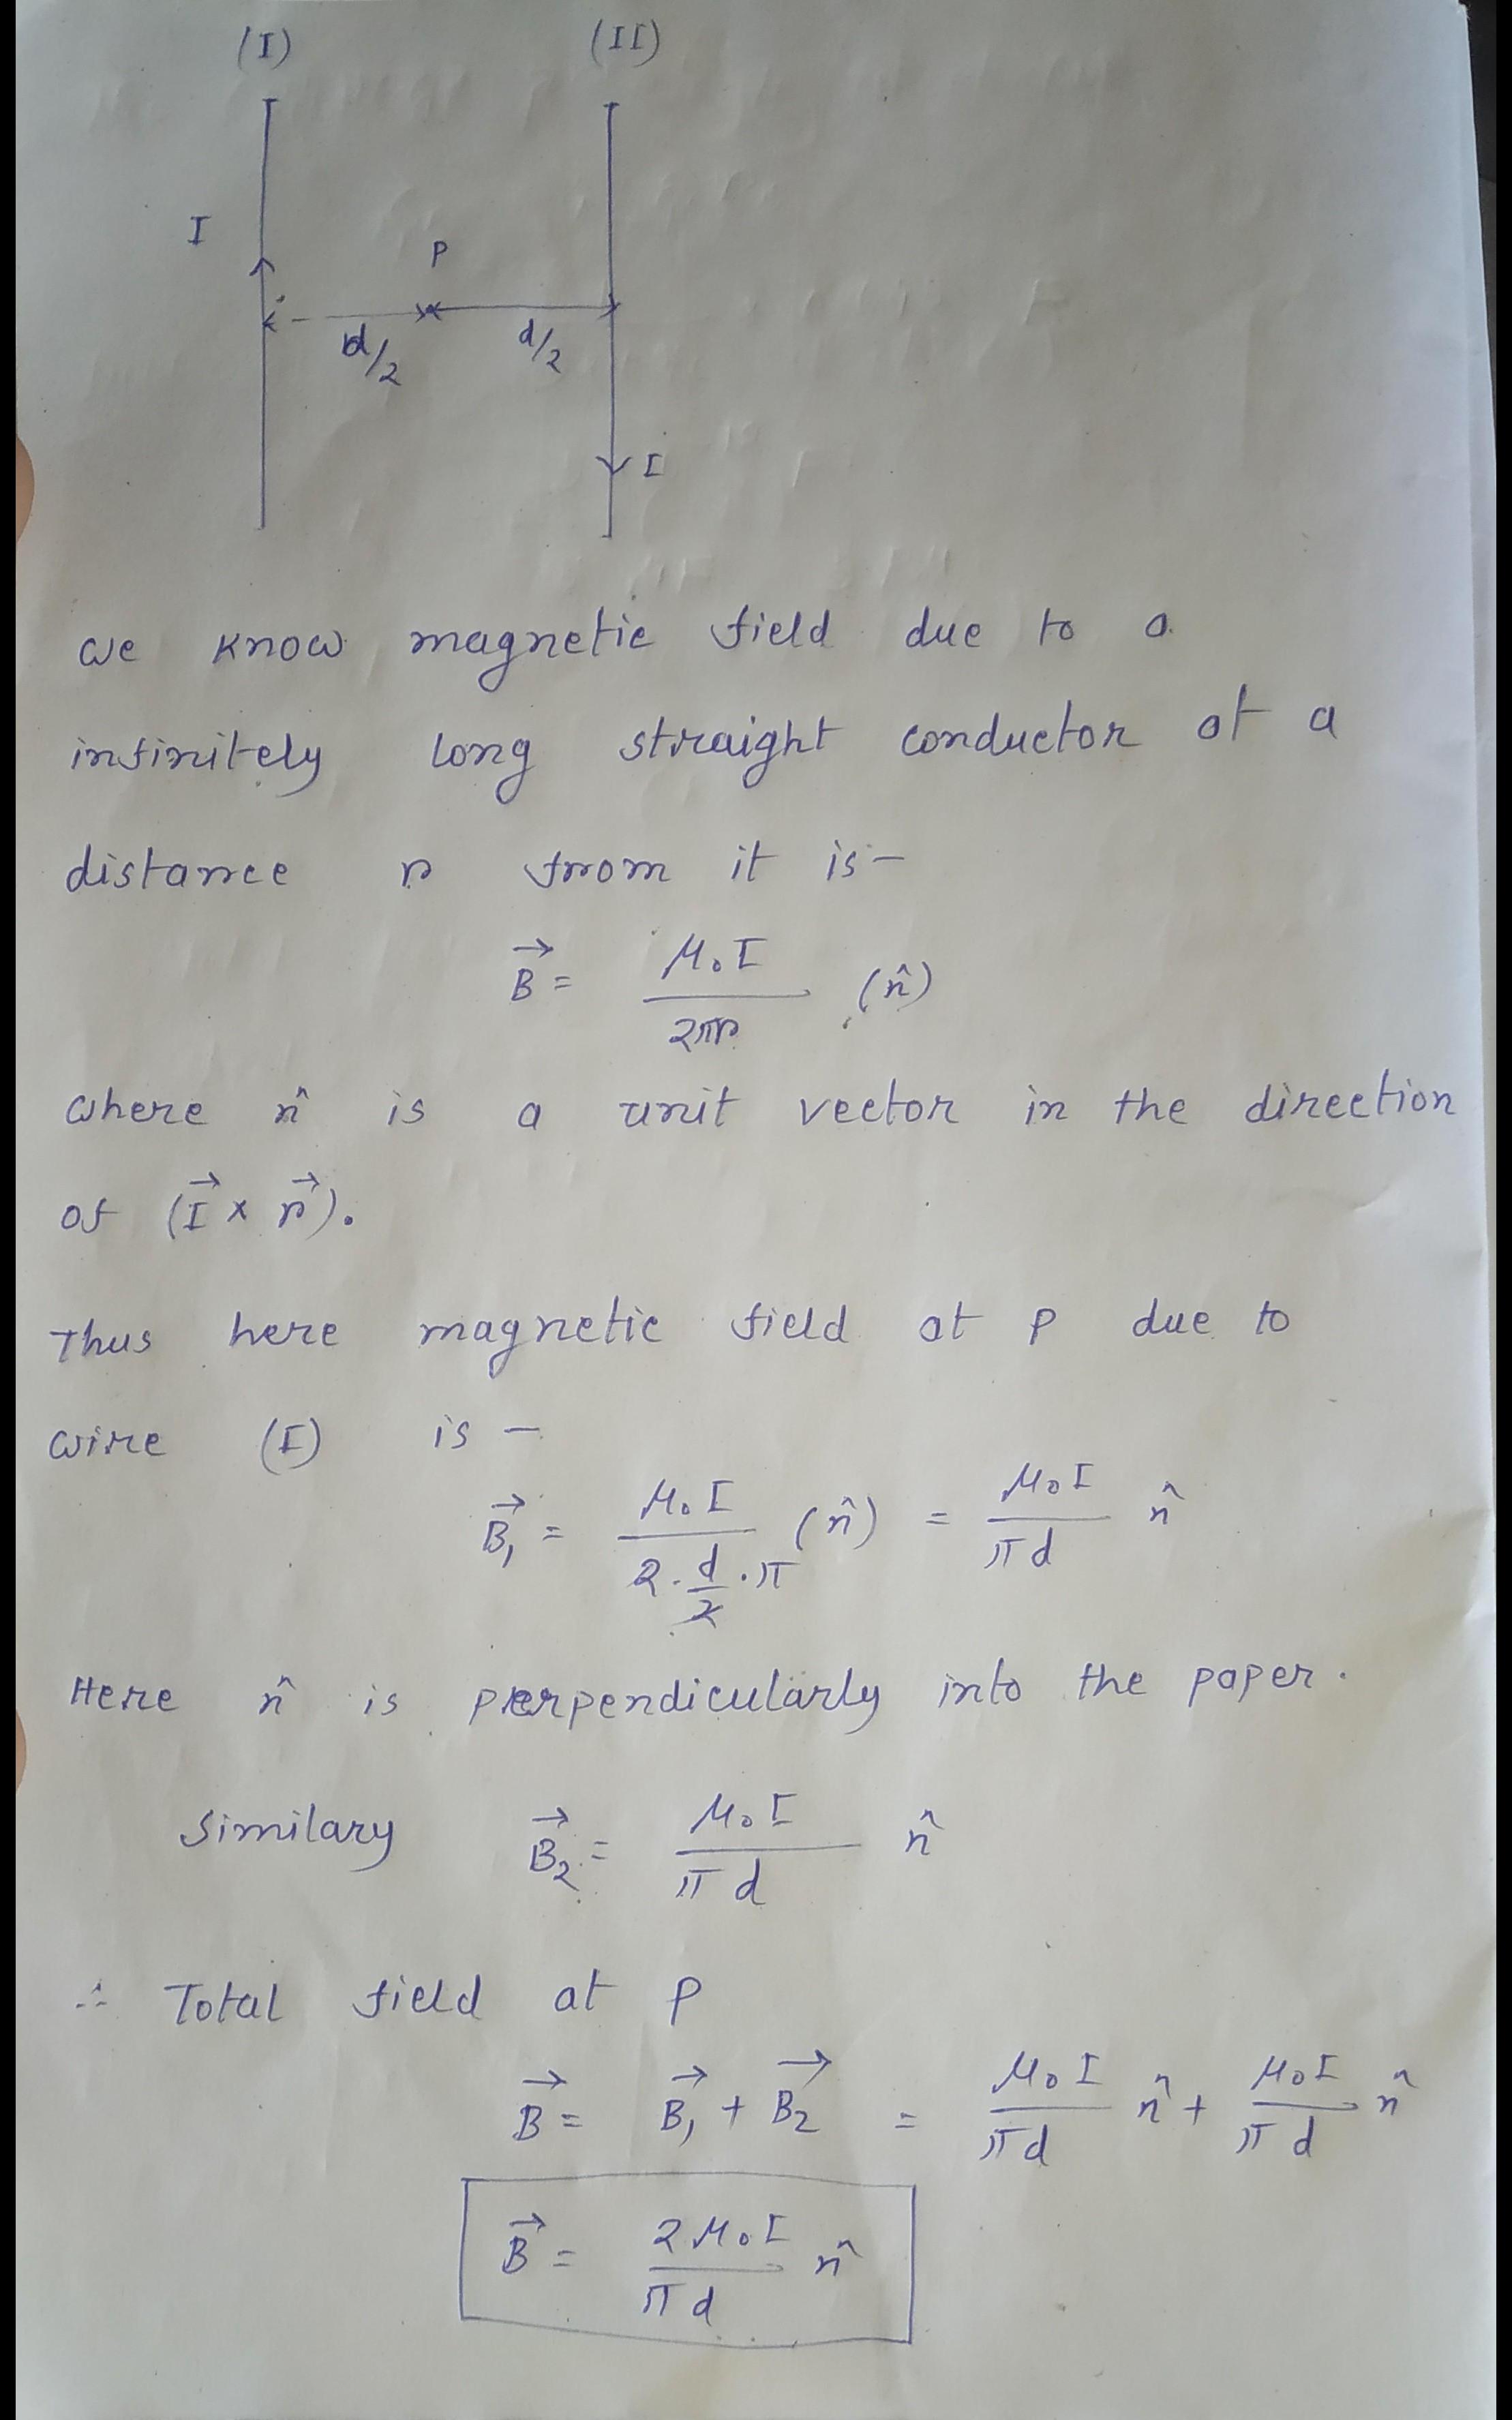 (I) (II)
I
P
d/2 d/2
I
We know magnetic field due to a
infinitely long straight conductor at a
distance r from it is –
B⃗ = μ₀I / 2πr (n̂)
where n̂ is a unit vector in the direction
of (I⃗ × r⃗).
Thus here magnetic field at P due to
wire (I) is –
B⃗₁ = μ₀I / 2·d/2·π (n̂) = μ₀I / πd n̂
Here n̂ is perpendicularly into the paper.
Similary B⃗₂ = μ₀I / πd n̂
∴ Total field at P
B⃗ = B⃗₁ + B⃗₂ = μ₀I / πd n̂ + μ₀I / πd n̂
B⃗ = 2μ₀I / πd n̂